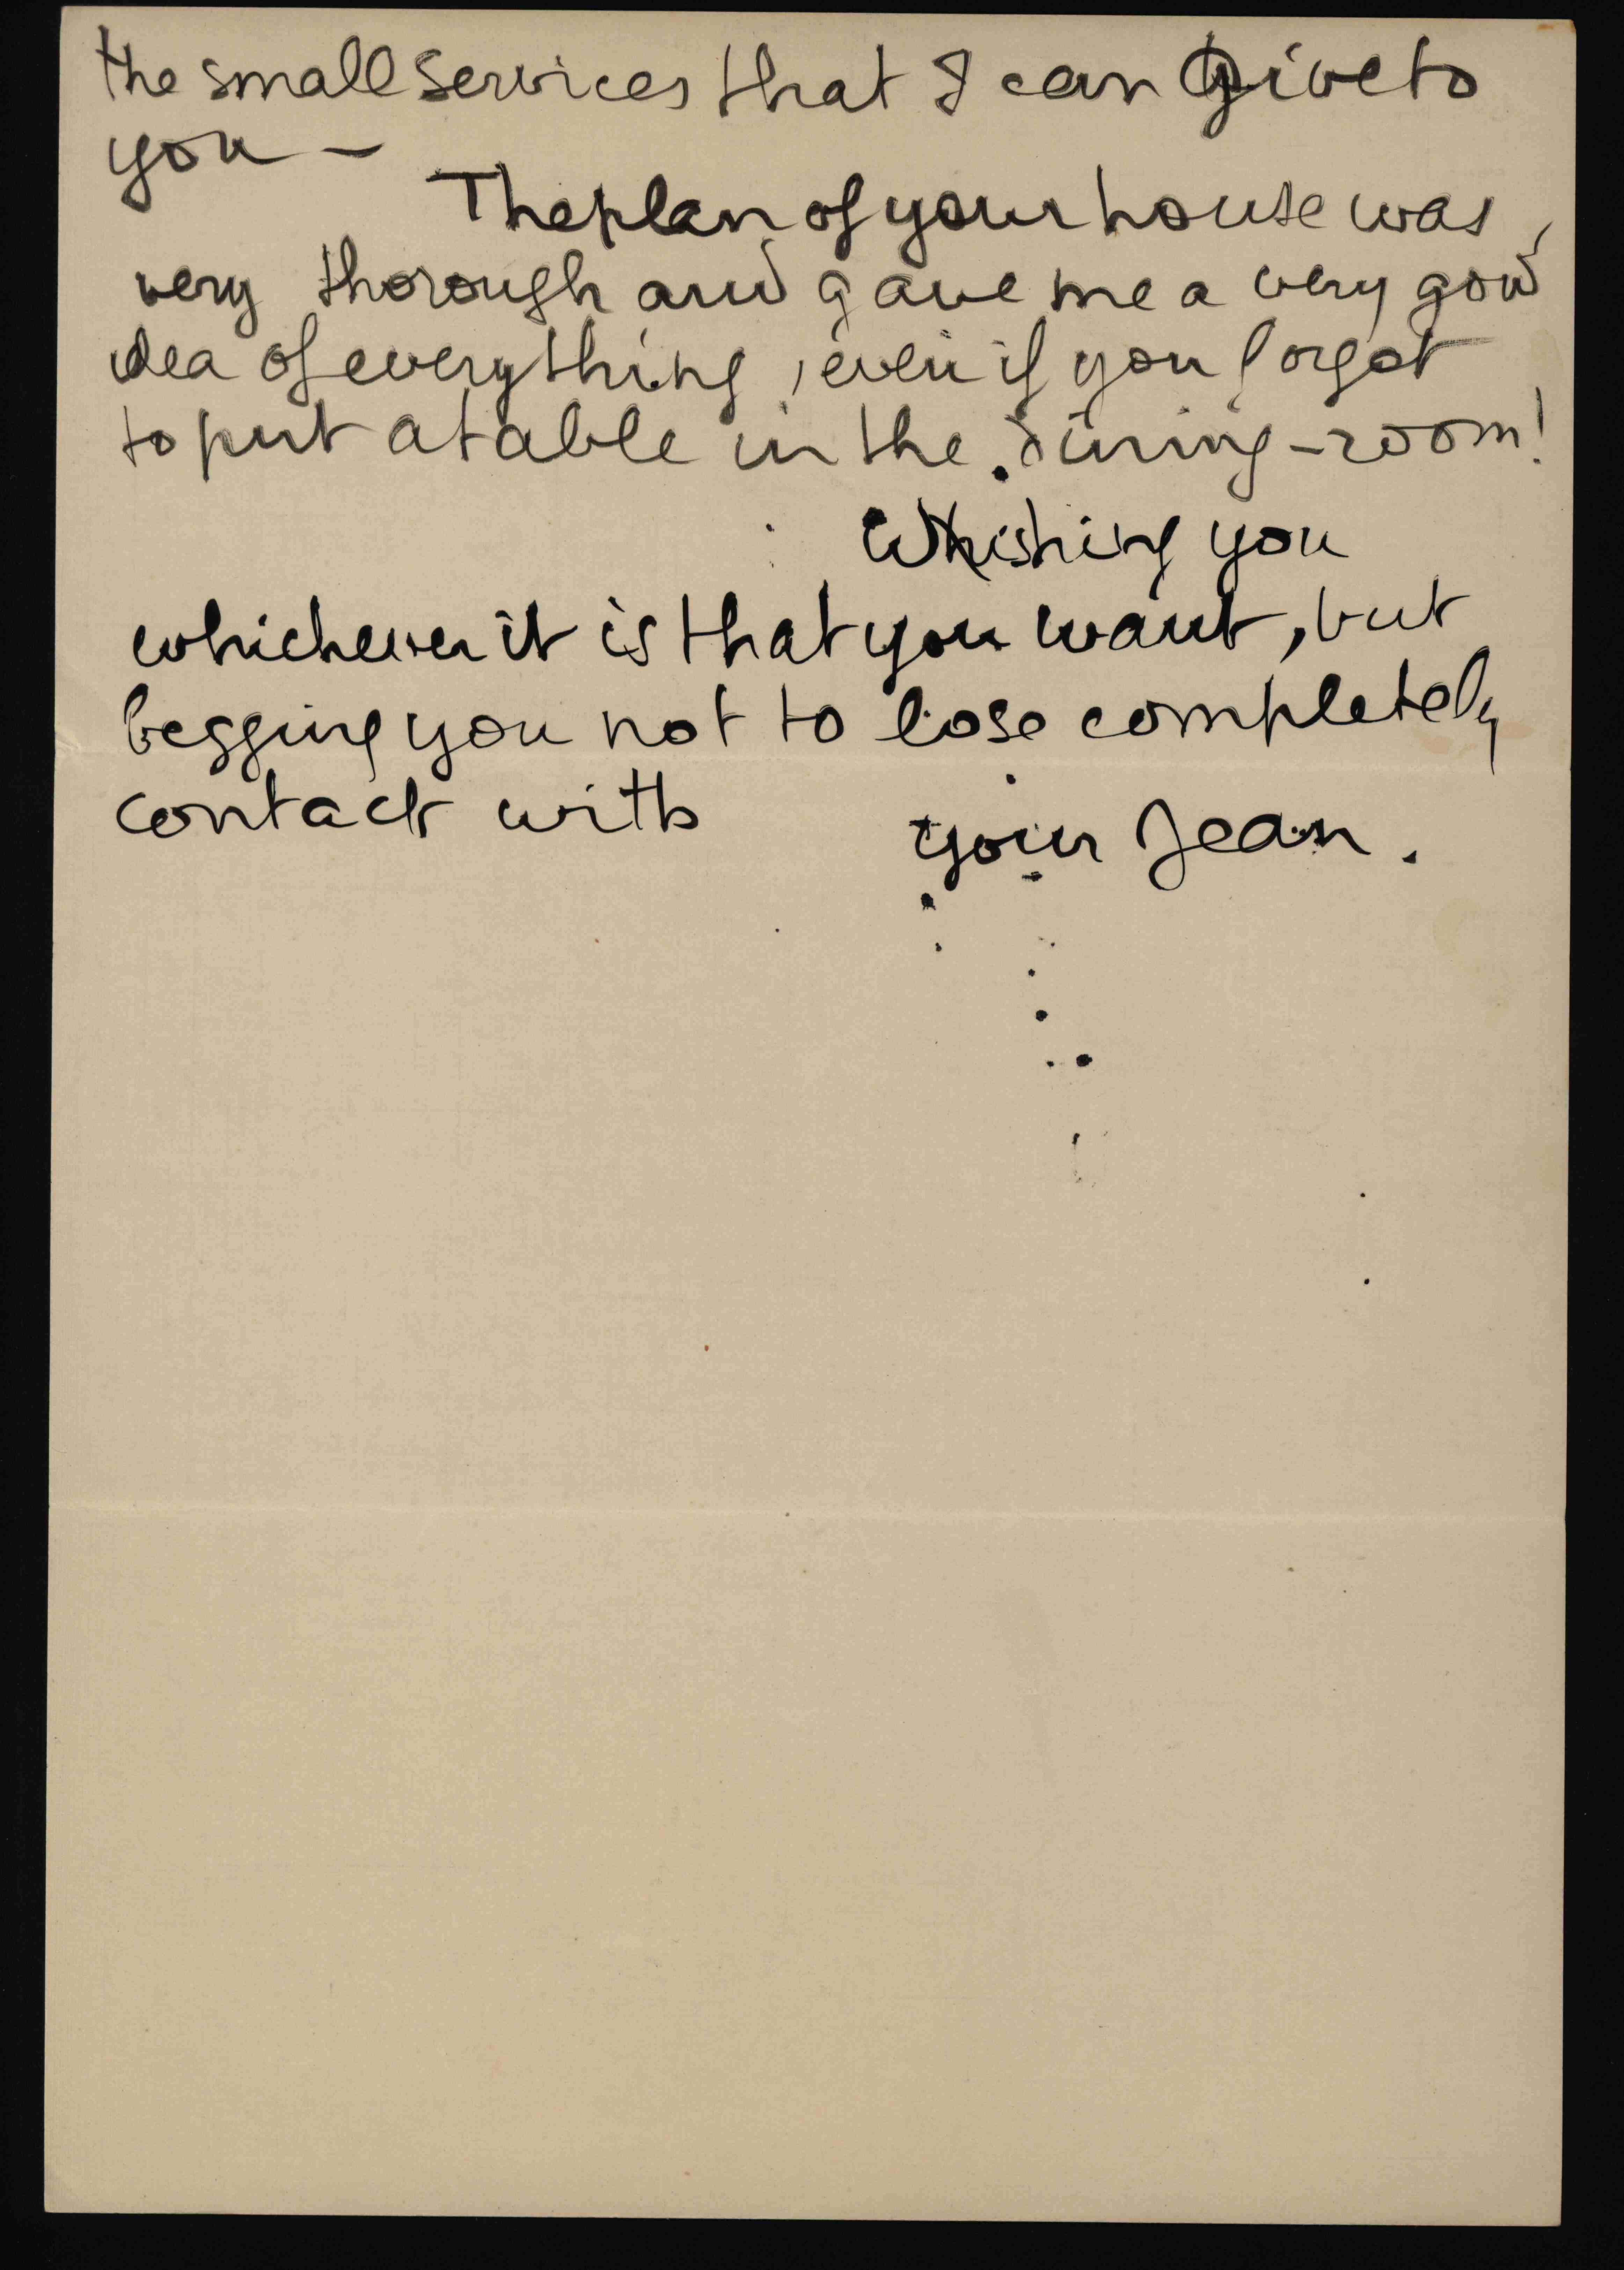 the small services that I can give to
you –
The plan of your house was
very thorough and gave me a very good
idea of everything, even if you forgot
to put a table in the dining-room!
Whishing you
whichever it is that you want, but
begging you not to lose completely
contact with
your Jean.